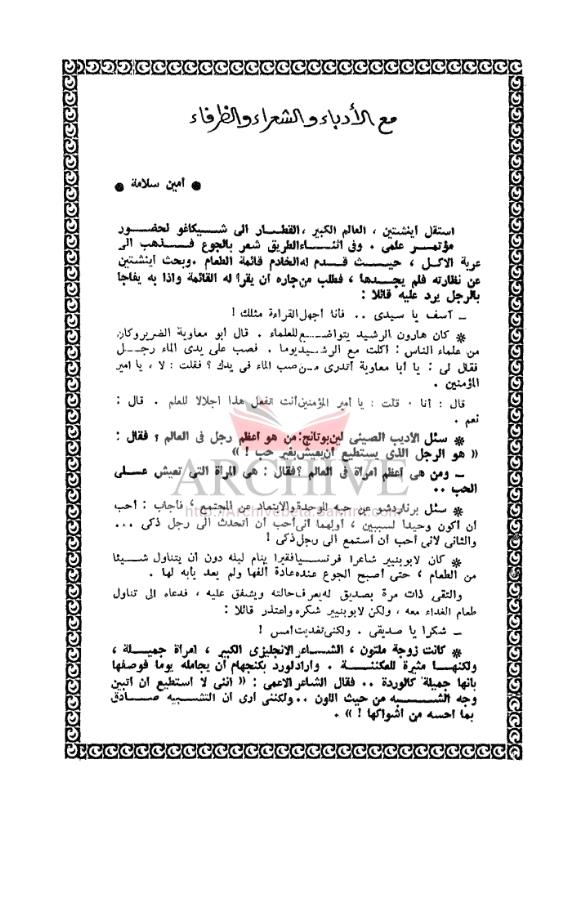 مع الأدباء والشعراء والظرفاء
● أمين سلامة ●
استقل اينشتين ، العالم الكبير ، القطار الى شيكاغو لحضور
مؤتمر علمى . وفى اثناء الطريق شعر بالجوع فذهب الى
عربة الاكل ، حيث قدم له الخادم قائمة الطعام . وبحث اينشتين
عن نظارته فلم يجدها ، فطلب من جاره ان يقرأ له القائمة واذا به يفاجأ
بالرجل يرد عليه قائلا :
ــ آسف يا سيدى .. فأنا أجهل القراءة مثلك !
* كان هارون الرشيد يتواضع للعلماء . قال أبو معاوية الضرير وكان
من علماء الناس : اكلت مع الرشيد يوما . فصب على يدى الماء رجل
فقال لى : يا أبا معاوية أتدرى من صب الماء فى يدك ؟ فقلت : لا ، يا أمير
المؤمنين .
قال : أنا . قلت : يا أمير المؤمنين أنت تفعل هذا اجلالا للعلم . قال :
نعم .
* سئل الأديب الصينى لين يوتانج : من هو أعظم رجل فى العالم ؟ فقال :
« هو الرجل الذى يستطيع أن يعيش بغير حب ! »
ــ ومن هى أعظم امرأة فى العالم ؟ فقال : هى المرأة التى تعيش على
الحب ..
ARCHIVE
http://Archivebeta.Sakhrit.com
* سئل برناردشو عن حبه للوحدة والابتعاد عن المجتمع ، فأجاب : أحب
أن أكون وحيدا لسببين ، أولهما أنى أحب أن أتحدث الى رجل ذكى ...
والثانى لأنى أحب أن أستمع الى رجل ذكى !
* كان لابوينيير شاعرا فرنسيا فقيرا ينام ليله دون أن يتناول شيئا
من الطعام ، حتى أصبح الجوع عنده عادة ألفها ولم يعد يأبه لها .
والتقى ذات مرة بصديق له يعرف حالته ويشفق عليه ، فدعاه الى تناول
طعام الغداء معه ، ولكن لابوينيير شكره واعتذر قائلا :
ــ شكرا يا صديقى . ولكنى تغديت أمس !
* كانت زوجة ملتون ، الشاعر الانجليزى الكبير ، امرأة جميلة ،
ولكنها مثيرة للعكننة . وأراد لورد بكنجهام أن يجامله يوما فوصفها
بأنها جميلة كالوردة .. فقال الشاعر الأعمى : « اننى لا استطيع ان أتبين
وجه الشبه من حيث اللون .. ولكننى أرى ان التشبيه صادق
بما أحسه من أشواكها ! » .